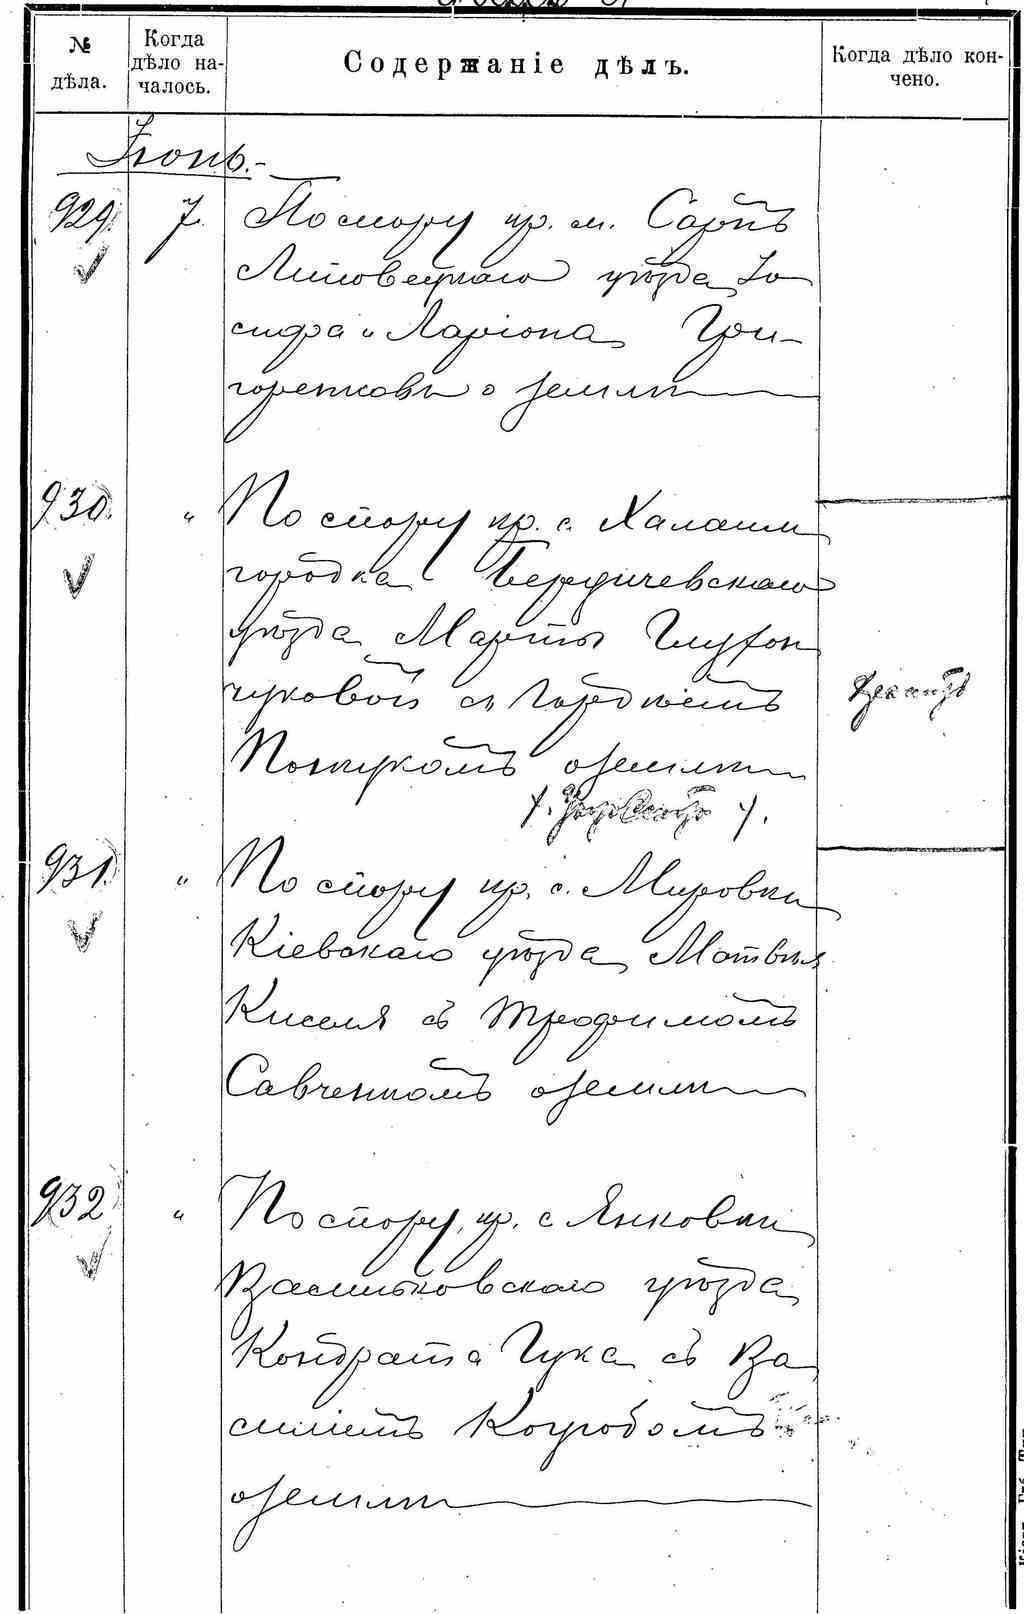 № дѣла.
Когда дѣло на-
чалось.
Содержаніе дѣлъ.
Когда дѣло кон-
чено.
Іюнь.-
929. 7. По спору кр. м. Сарнъ
Липовецкаго уѣзда Іо
сифа и Ларіона Гри-
горенковы о землѣ
930. " По спору кр. с. Халаим
городка Бердичевскаго
уѣзда Марты
чуковой съ Гордѣемъ
о землѣ
931. " По спору кр. с. Мировки
Кіевскаго уѣзда Матвѣя
Киселя съ Трофимомъ
Савченкомъ о землѣ
932 " По спору кр. с Янковки
Васильковскаго уѣзда
Кондрата Гука съ Ва
силіемъ Коцюбомъ
о землѣ